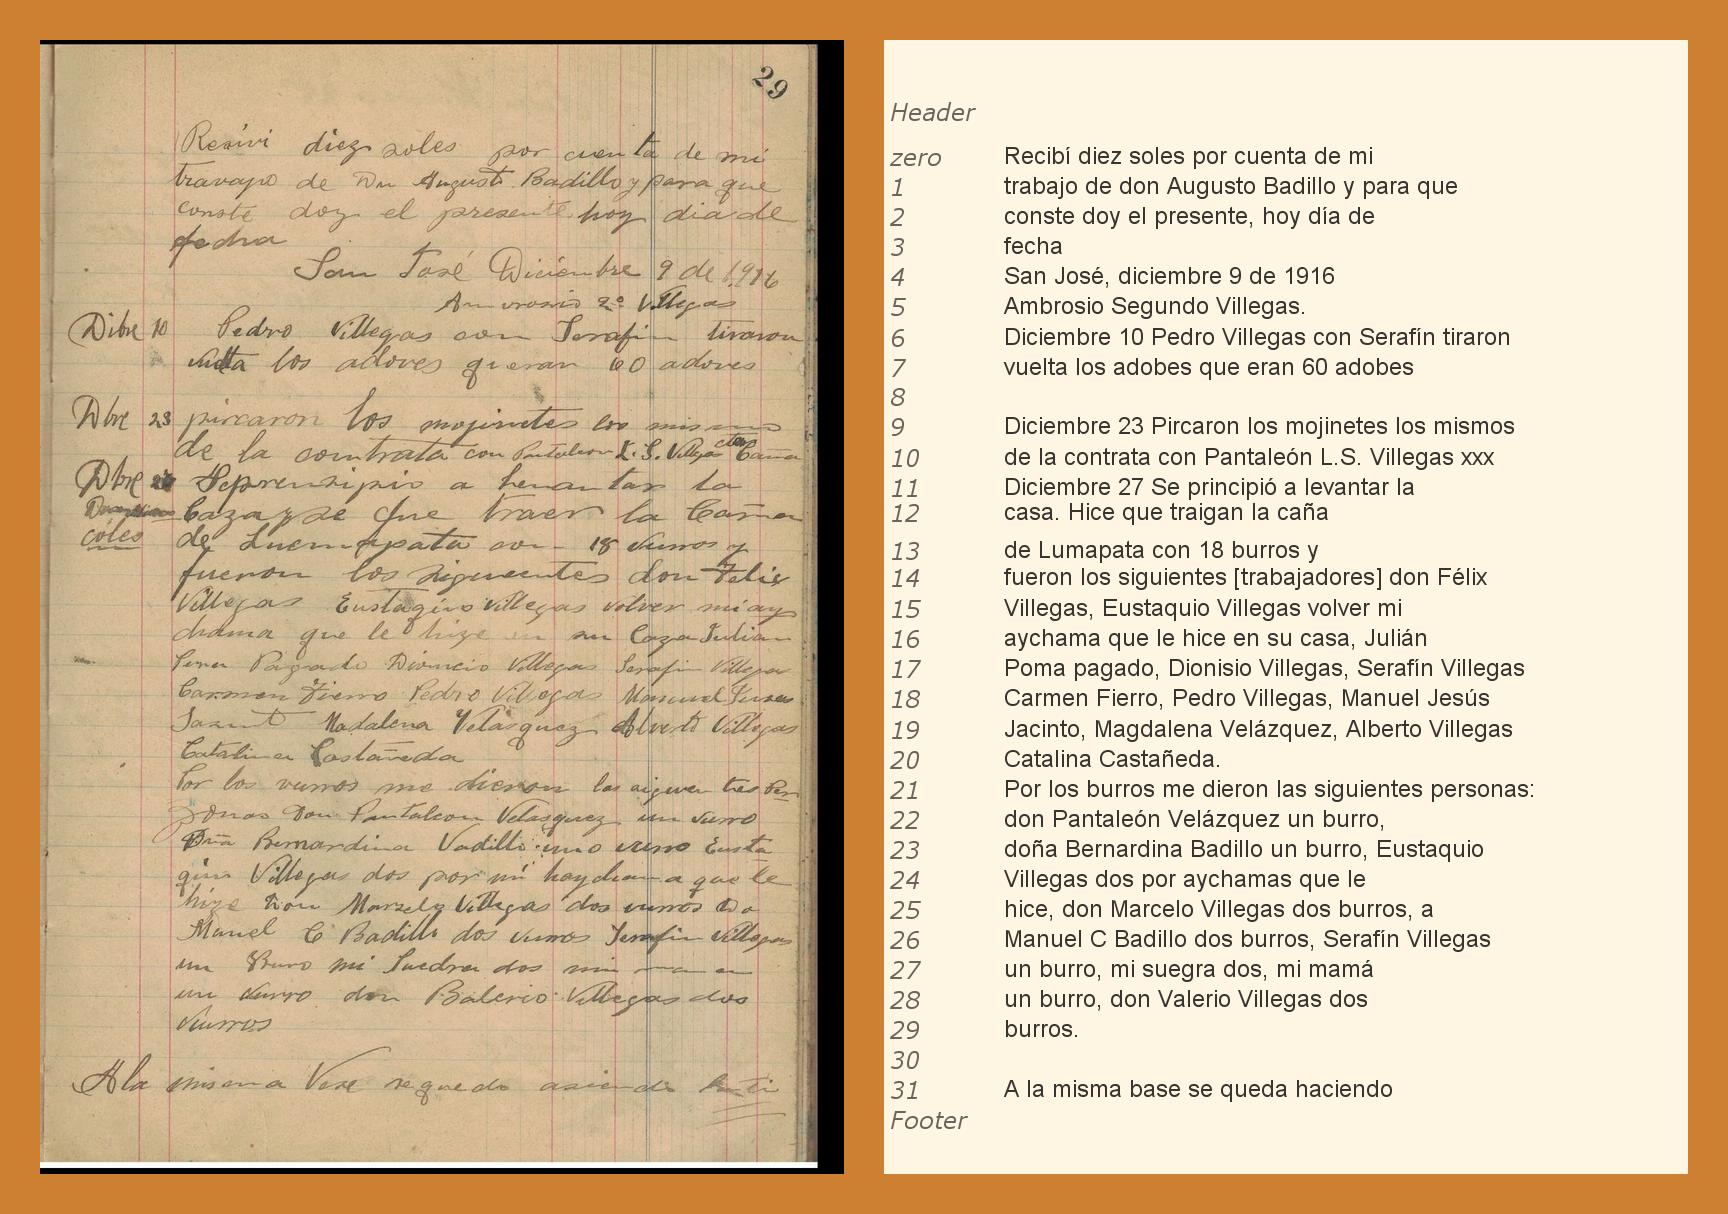 29
Resivi diez soles por cuenta de mi
travajo de Dn Augusto Badillo y para que
conste doy el presente hoy dia de
fecha
San José Diciembre 9 de 1916
Amvrosio 2º Villegas
Dibre 10 Pedro Villegas con Serafin tiraron
vuelta los adoves queran 60 adoves
Dbre 23 pircaron los mojinetes los mismos
de la contrata con Pantaleon L. S. Villegas
Dbre 27 Seprensipio a levantar la
Caza yze que traer la Caña
coles
de Lucmapata con 18 vurros y
fueron los siguientes don Felix
Villegas Eustaqino Villegas volver mi ay
chama que le hize en su Caza Julian
Poma Pagado Dionicio Villegas Serafin Villegas
Carmen Fierro Pedro Villegas Manuel Jesus
Jasint Madalena Velasquez Alverto Villegas
Catalina Castañeda
Por los vurros me dieron las siguentes Per
zonas Don Pantaleon Velasquez un vurro
Dña Bernardina Vadillo uno vurro Eusta
qin Villegas dos por mi haychama que le
hize Don Marzelo Villegas dos vurros Do
Manuel C Badillo dos vurros Serafin Villegas
un Burro mi Suedra dos mi mama
un vurro don Balerio Villegas dos
vurros
A la misma Vase se quedo asiendo
Header
zero Recibí diez soles por cuenta de mi
1 trabajo de don Augusto Badillo y para que
2 conste doy el presente, hoy día de
3 fecha
4 San José, diciembre 9 de 1916
5 Ambrosio Segundo Villegas.
6 Diciembre 10 Pedro Villegas con Serafín tiraron
7 vuelta los adobes que eran 60 adobes
8
9 Diciembre 23 Pircaron los mojinetes los mismos
10 de la contrata con Pantaleón L.S. Villegas xxx
11 Diciembre 27 Se principió a levantar la
12 casa. Hice que traigan la caña
13 de Lumapata con 18 burros y
14 fueron los siguientes [trabajadores] don Félix
15 Villegas, Eustaquio Villegas volver mi
16 aychama que le hice en su casa, Julián
17 Poma pagado, Dionisio Villegas, Serafín Villegas
18 Carmen Fierro, Pedro Villegas, Manuel Jesús
19 Jacinto, Magdalena Velázquez, Alberto Villegas
20 Catalina Castañeda.
21 Por los burros me dieron las siguientes personas:
22 don Pantaleón Velázquez un burro,
23 doña Bernardina Badillo un burro, Eustaquio
24 Villegas dos por aychamas que le
25 hice, don Marcelo Villegas dos burros, a
26 Manuel C Badillo dos burros, Serafín Villegas
27 un burro, mi suegra dos, mi mamá
28 un burro, don Valerio Villegas dos
29 burros.
30
31 A la misma base se queda haciendo
Footer